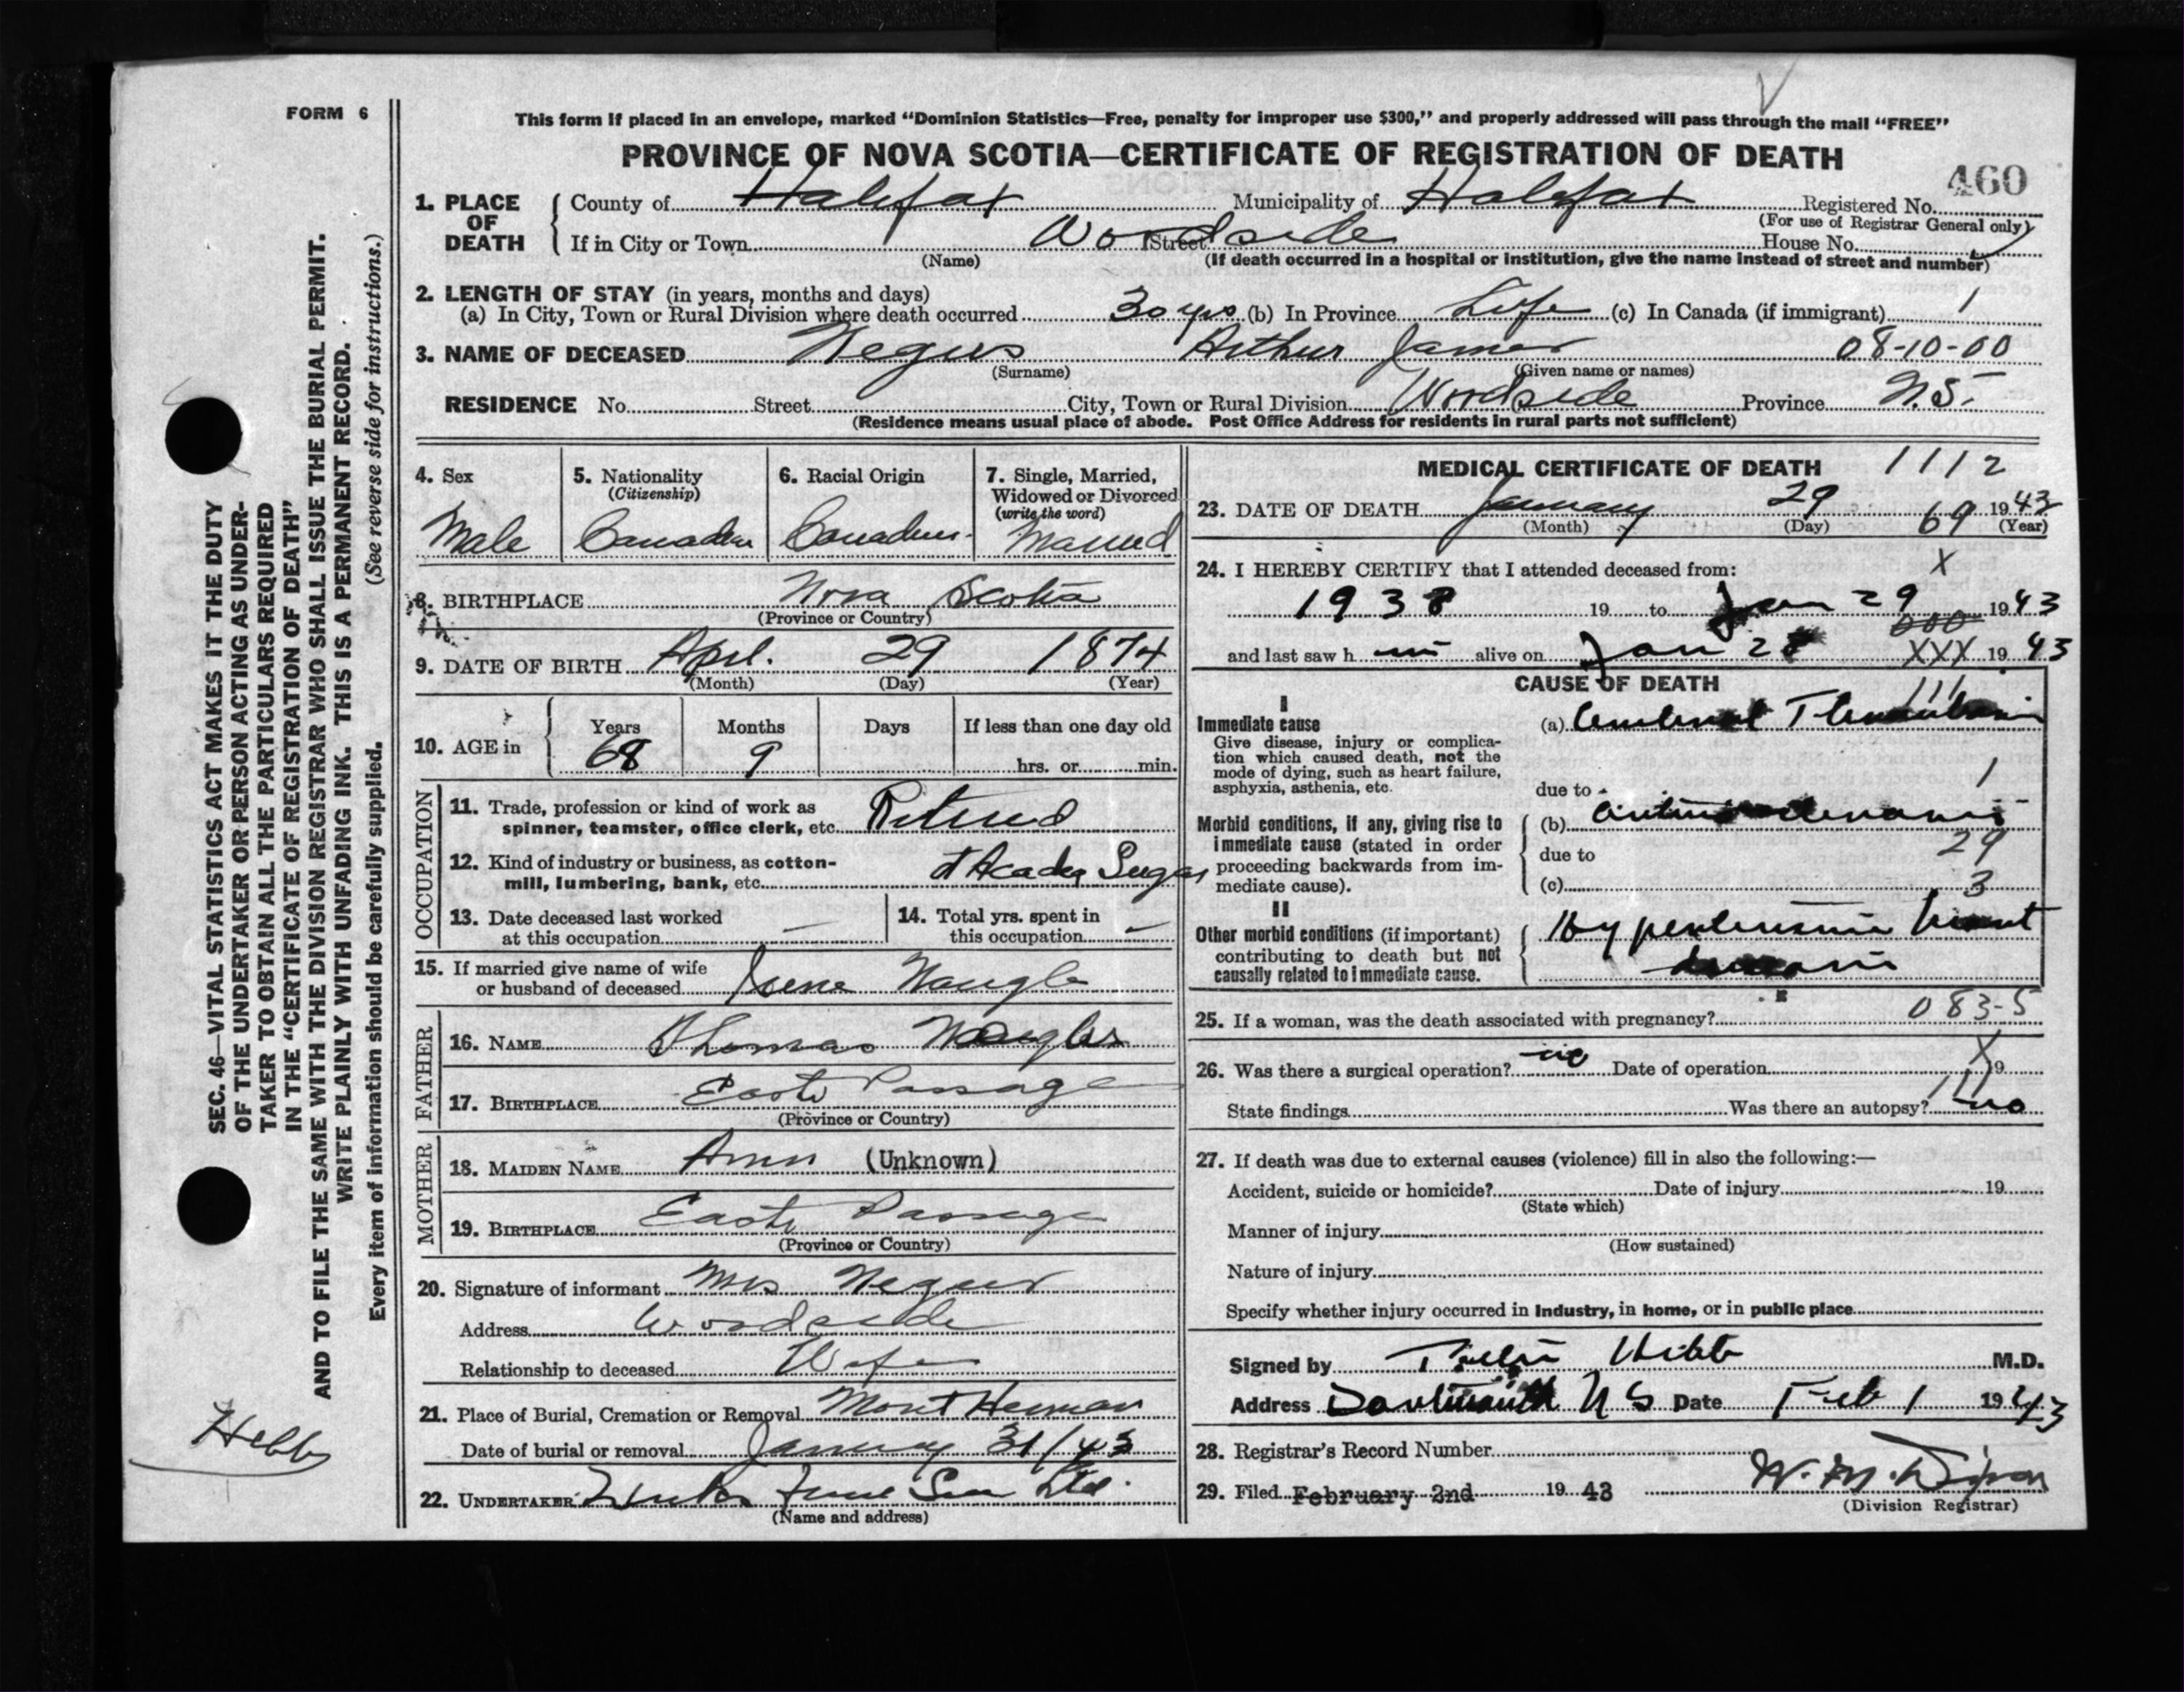 FORM 6
This form if placed in an envelope, marked “Dominion Statistics—Free, penalty for improper use $300,” and properly addressed will pass through the mail “FREE”
PROVINCE OF NOVA SCOTIA—CERTIFICATE OF REGISTRATION OF DEATH
460
1. PLACE OF DEATH
County of Halifax Municipality of Halifax Registered No.
(For use of Registrar General only)
If in City or Town Woodside Street House No.
(Name) (If death occurred in a hospital or institution, give the name instead of street and number)
2. LENGTH OF STAY (in years, months and days)
(a) In City, Town or Rural Division where death occurred 30 yrs (b) In Province Life (c) In Canada (if immigrant) 1
3. NAME OF DECEASED Negus Arthur James 08-10-00
(Surname) (Given name or names)
RESIDENCE No. Street City, Town or Rural Division Woodside Province N.S.
(Residence means usual place of abode. Post Office Address for residents in rural parts not sufficient)
4. Sex
Male
5. Nationality
(Citizenship)
Canadian
6. Racial Origin
Canadian
7. Single, Married,
Widowed or Divorced
(write the word)
Married
8. BIRTHPLACE Nova Scotia
(Province or Country)
9. DATE OF BIRTH April 29 1874
(Month) (Day) (Year)
10. AGE in
Years Months Days If less than one day old
68 9 hrs. or min.
OCCUPATION
11. Trade, profession or kind of work as
spinner, teamster, office clerk, etc. Retired
12. Kind of industry or business, as cotton-
mill, lumbering, bank, etc. Acadia Sugar
13. Date deceased last worked
at this occupation —
14. Total yrs. spent in
this occupation —
15. If married give name of wife
or husband of deceased Irene Naugle
FATHER
16. NAME Thomas
17. BIRTHPLACE East Passage
(Province or Country)
MOTHER
18. MAIDEN NAME Ann (Unknown)
19. BIRTHPLACE East Passage
(Province or Country)
20. Signature of informant Mrs Negus
Address Woodside
Relationship to deceased Wife
21. Place of Burial, Cremation or Removal Mont Herman
Date of burial or removal January 31/43
22. UNDERTAKER Ltd.
(Name and address)
MEDICAL CERTIFICATE OF DEATH 1112
23. DATE OF DEATH January 29 1943
(Month) (Day) 69 (Year)
24. I HEREBY CERTIFY that I attended deceased from: X
1938 19 to Jan 29 1943
000
and last saw h im alive on Jan 28 XXX 19 43
CAUSE OF DEATH
111
I
Immediate cause
Give disease, injury or complica-
tion which caused death, not the
mode of dying, such as heart failure,
asphyxia, asthenia, etc.
(a) Cerebral Thrombosis
1
due to
Morbid conditions, if any, giving rise to
immediate cause (stated in order
proceeding backwards from im-
mediate cause).
(b)
due to 29
(c) 3
II
Other morbid conditions (if important)
contributing to death but not
causally related to immediate cause.
Hypertensive heart
083-5
25. If a woman, was the death associated with pregnancy?
26. Was there a surgical operation? no Date of operation X 19
111
State findings Was there an autopsy? no
27. If death was due to external causes (violence) fill in also the following:—
Accident, suicide or homicide? Date of injury 19
(State which)
Manner of injury
(How sustained)
Nature of injury
Specify whether injury occurred in industry, in home, or in public place
Signed by Hebb M.D.
Address Dartmouth N S Date Feb 1 1943
28. Registrar's Record Number
29. Filed February 2nd 19 43 W. M.
(Division Registrar)
SEC. 46—VITAL STATISTICS ACT MAKES IT THE DUTY
OF THE UNDERTAKER OR PERSON ACTING AS UNDER-
TAKER TO OBTAIN ALL THE PARTICULARS REQUIRED
IN THE “CERTIFICATE OF REGISTRATION OF DEATH”
AND TO FILE THE SAME WITH THE DIVISION REGISTRAR WHO SHALL ISSUE THE BURIAL PERMIT.
WRITE PLAINLY WITH UNFADING INK. THIS IS A PERMANENT RECORD.
Every item of information should be carefully supplied. (See reverse side for instructions.)
Hebb